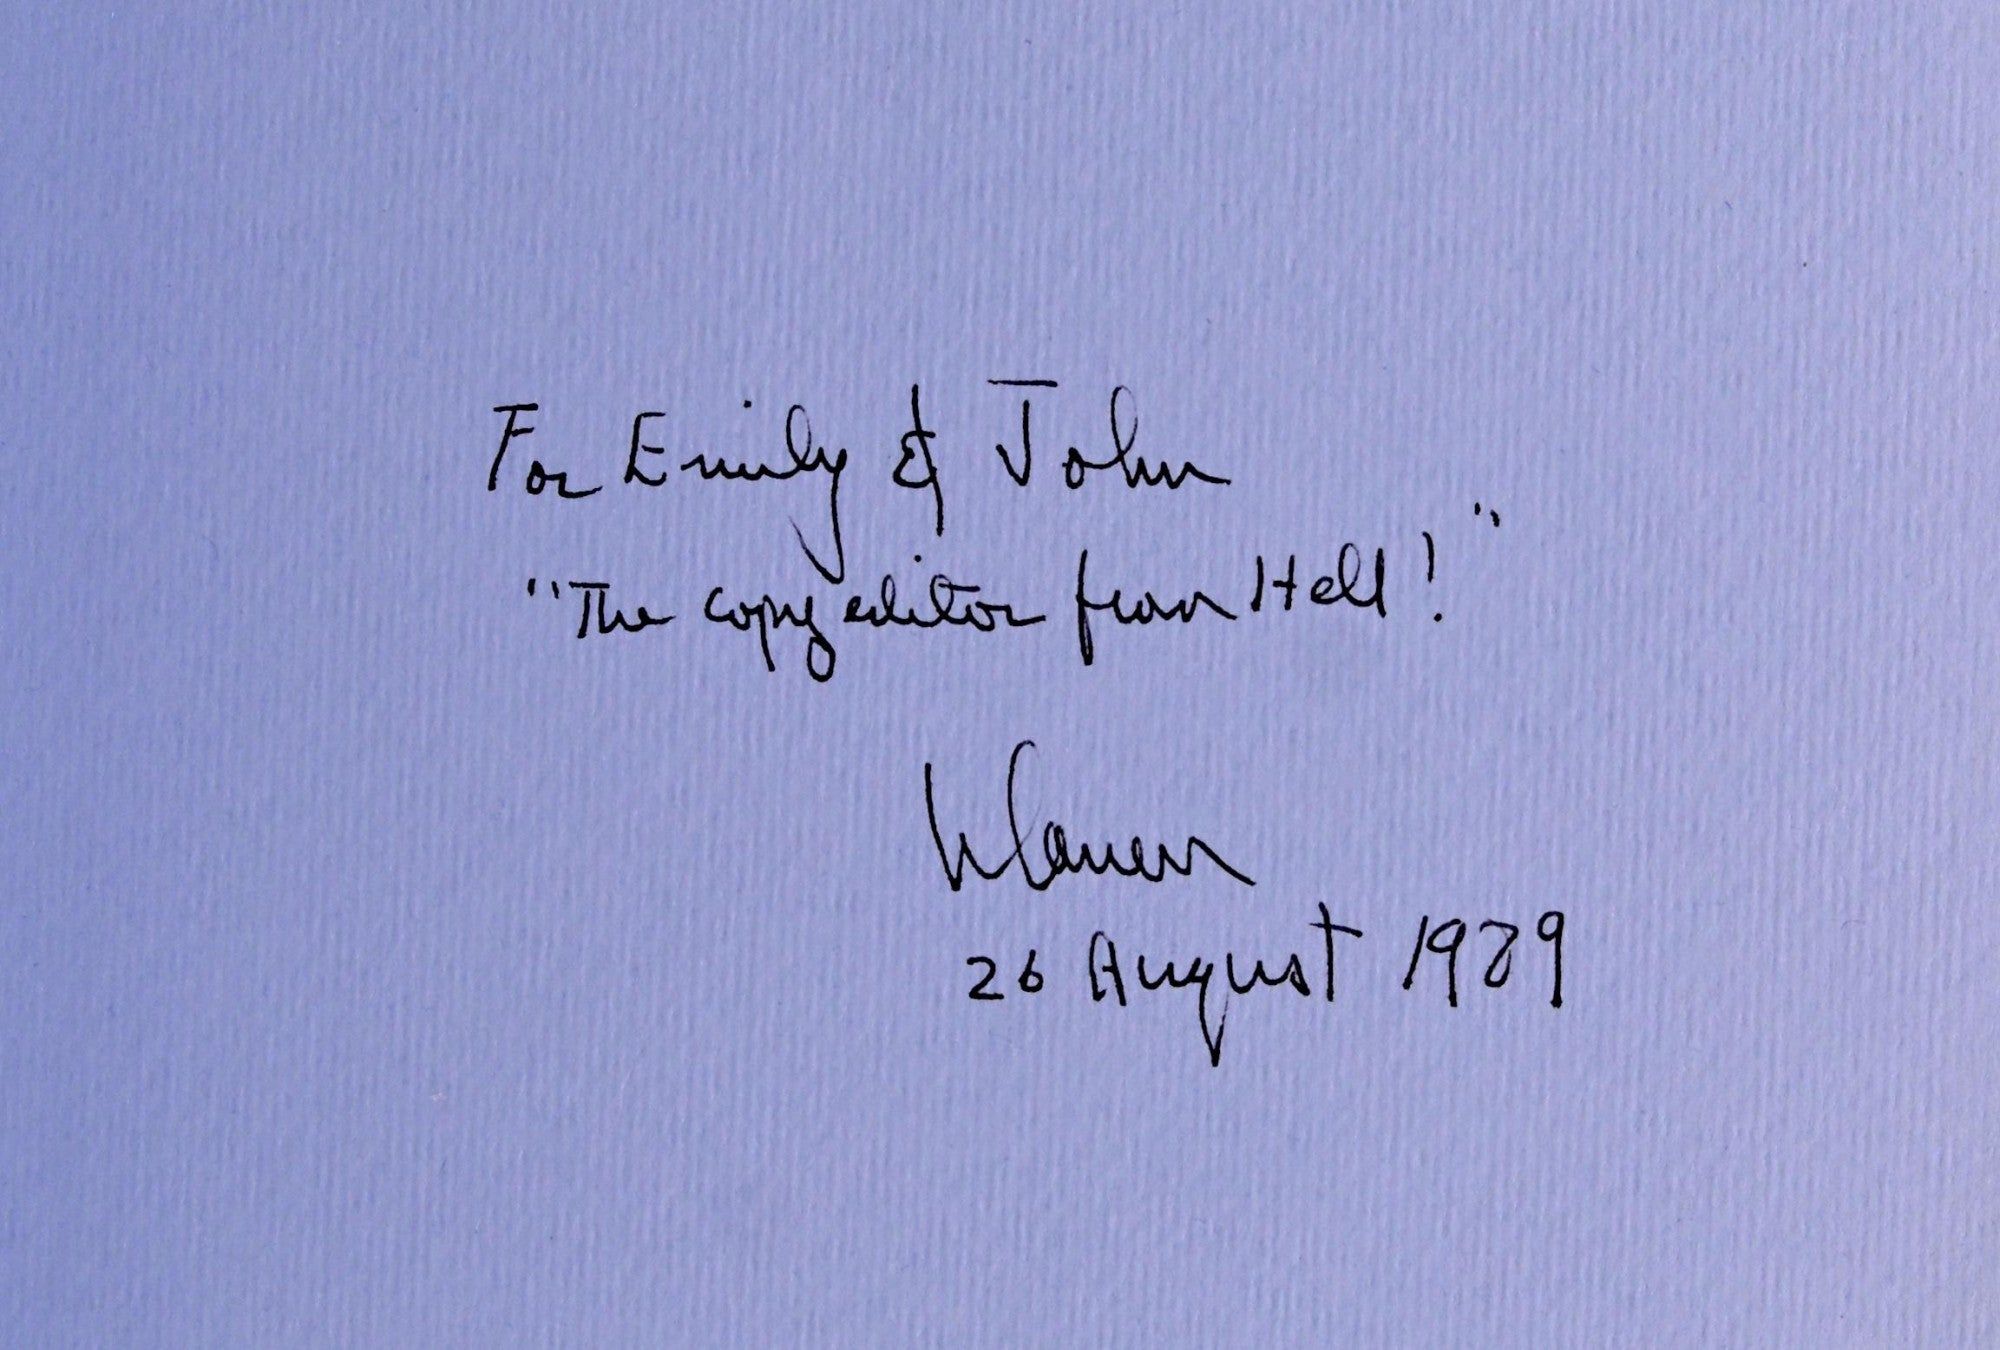 For Emily & John
"The copy editor from Hell!"
Warren
26 August 1989